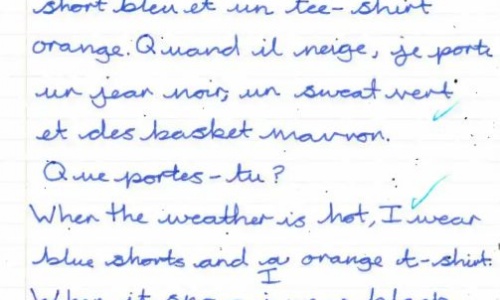 short bleu et un tee-shirt
orange. Quand il neige, je porte
un jean noir, un sweat vert
et des basket marron.
Que portes-tu?
When the weather is hot, I wear
blue shorts and a orange t-shirt.
I
When it